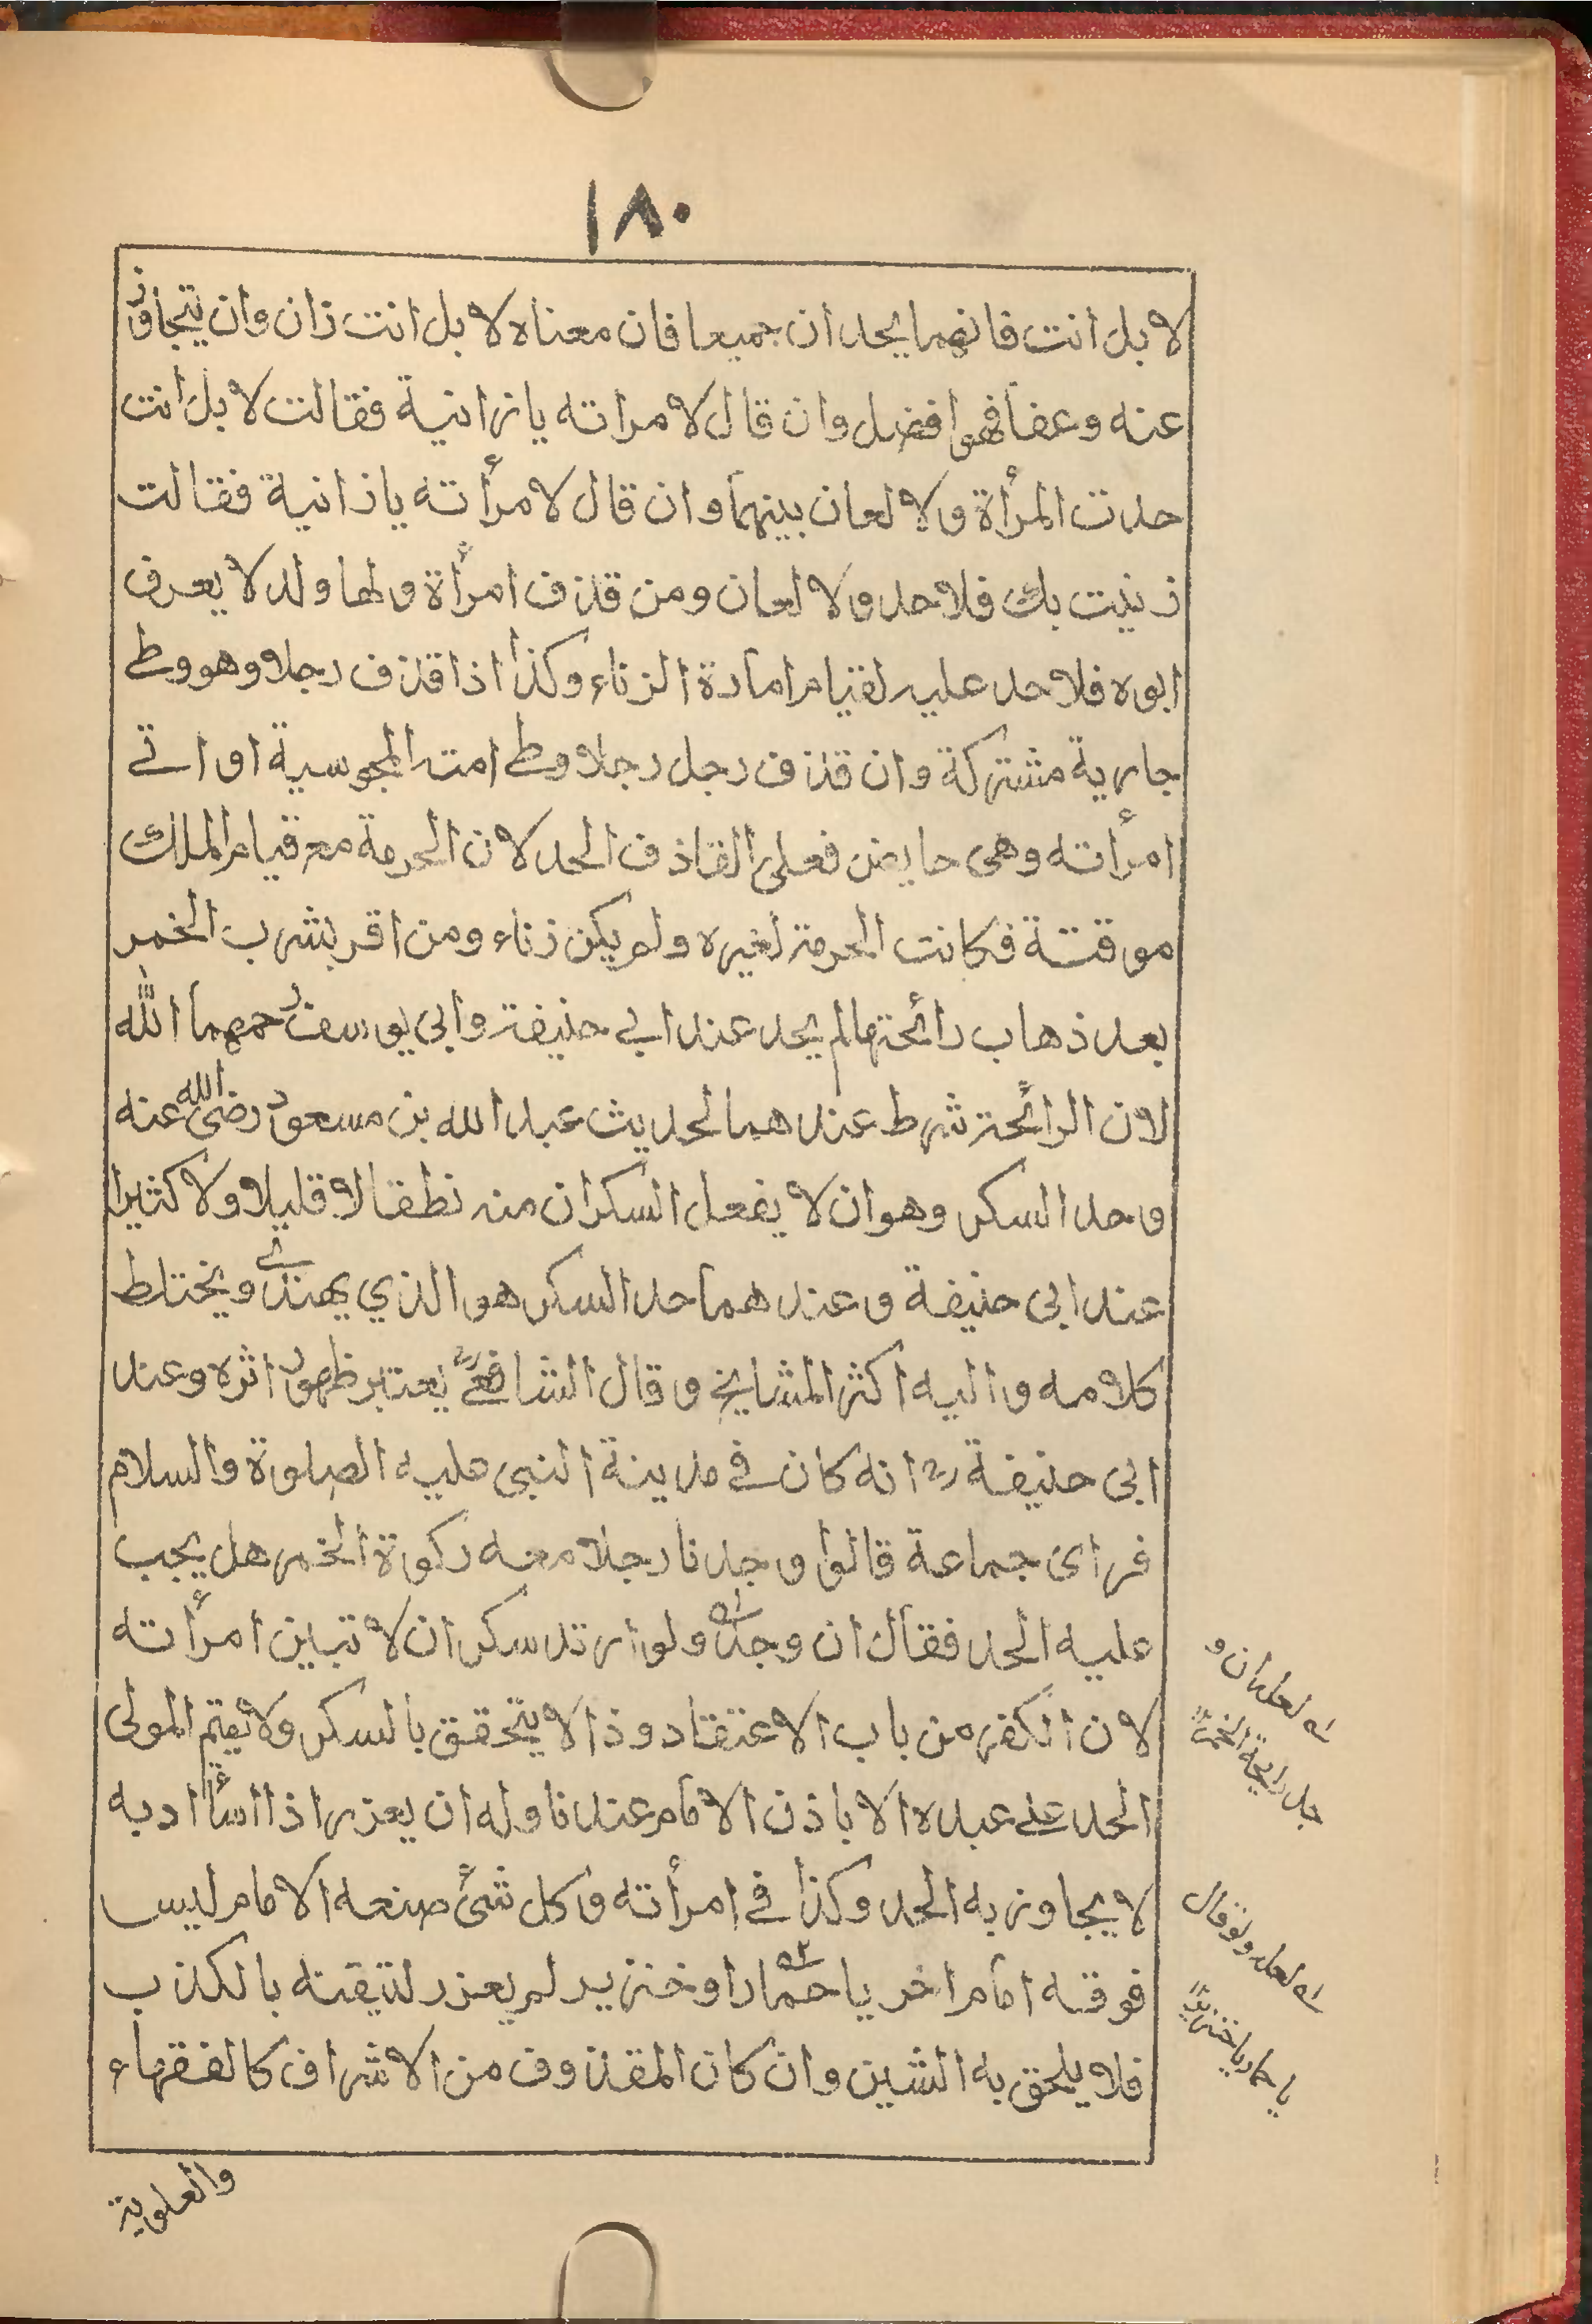 ١٨٠
لا بل انت فانهما يحدان جميعا فان معناه لا بل انت زان وان يتجاوز
عنه وعفا فهوا فضل وان قال لامراته يا زانية فقالت لا بل انت
حدت المرأة ولا لعان بينهما وان قال لامرأته يا زانية فقالت
زنيت بك فلا حد ولا لعان ومن قذف امرأة ولها ولد لا يعرف
ابوه فلا حد عليه لقيام امارة الزناء وكذا اذا قذف رجلا وهو وطى
جارية مشتركة وان قذف رجل رجلا وطى امته المجوسية او اتى
امرأته وهى حايض فعلى القاذف الحد لان الحرمة مع قيام الملك
موقتة فكانت الحرمة لغيره ولم يكن زناء ومن اقر بشرب الخمر
بعد ذهاب رائحتها لم يحد عند ابي حنيفة وابى يوسف رحمهما الله
لان الرائحة شرط عندهما لحديث عبد الله بن مسعود رضى الله عنه
وحد السكر وهو ان لا يفعل السكران منه نطقا لا قليلا ولا كثيرا
عند ابى حنيفة وعندهما حد السكر هو الذي يهذى ويختلط
كلامه واليه اكثر المشايخ وقال الشافعى رح يعتبر ظهور اثره وعند
ابى حنيفة رح انه كان في مدينة النبى عليه الصلوة والسلام
فراى جماعة قالوا وجدنا رجلا معه ركوة الخمر هل يجب
عليه الحد فقال ان وجد له ولو ارتد سكران لا تبين امرأته
لان الكفر من باب الاعتقاد وذا لا يتحقق بالسكر ولا يقيم المولى
الحد على عبده الا باذن الامام عندنا وله ان يعزر اذا اسأ ادبه
لا يجاوز به الحد وكذا في امرأته وكل شئ صنعه الامام ليس
فوقه امام اخر يا حمارا وخنزير لم يعزر لتيقنه بالكذب
فلا يلحق به الشين وان كان المقذوف من الاشراف كالفقهاء
والعلوية
له لعل ان و
جد رايحة الخمر
له لعل ولو قال
يا حمار يا خنزير